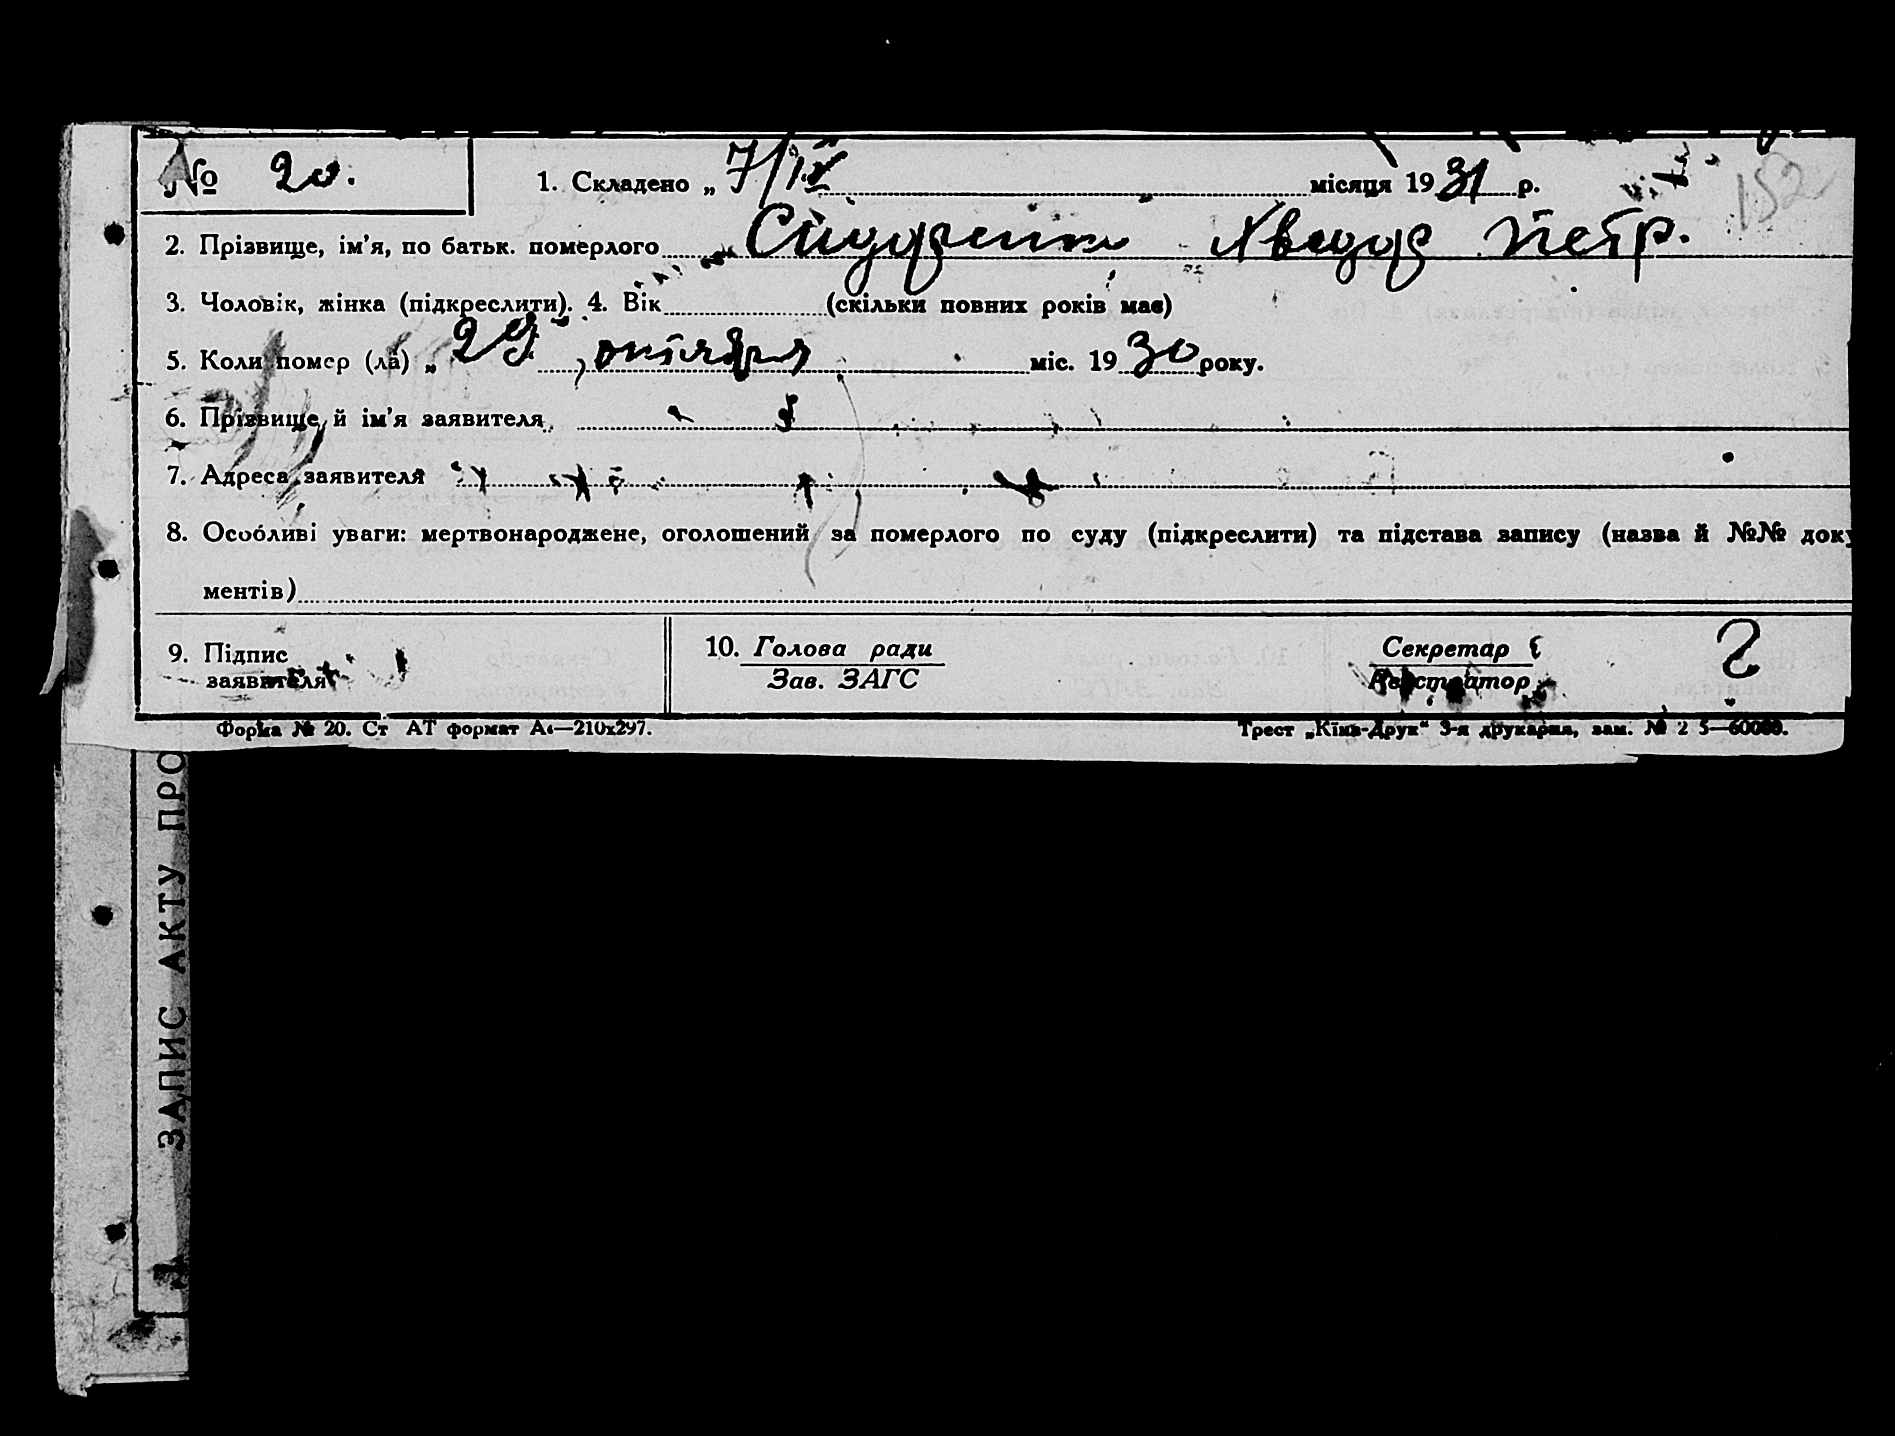 № 20.
1. Складено „ 7/IV місяця 1931 р.
152
2. Прізвище, ім'я, по батьк. померлого Сидоренко Хведор Петр.
3. Чоловік, жінка (підкреслити). 4. Вік (скільки повних років має)
5. Коли помер (ла) „ 29 октября міс. 1930 року.
6. Прізвище й ім'я заявителя
7. Адреса заявителя
8. Особливі уваги: мертвонароджене, оголошений за померлого по суду (підкреслити) та підстава запису (назва й №№ доку
ментів)
9. Підпис
заявителя
10. Голова ради
Зав. ЗАГС
Секретар
Реєстратор
Форма № 20. Ст АТ формат А4—210х297.
Трест „Київ-Друк“ 3-я друкарня, зам. № 2 5—60000.
ЗАПИС АКТУ ПРО